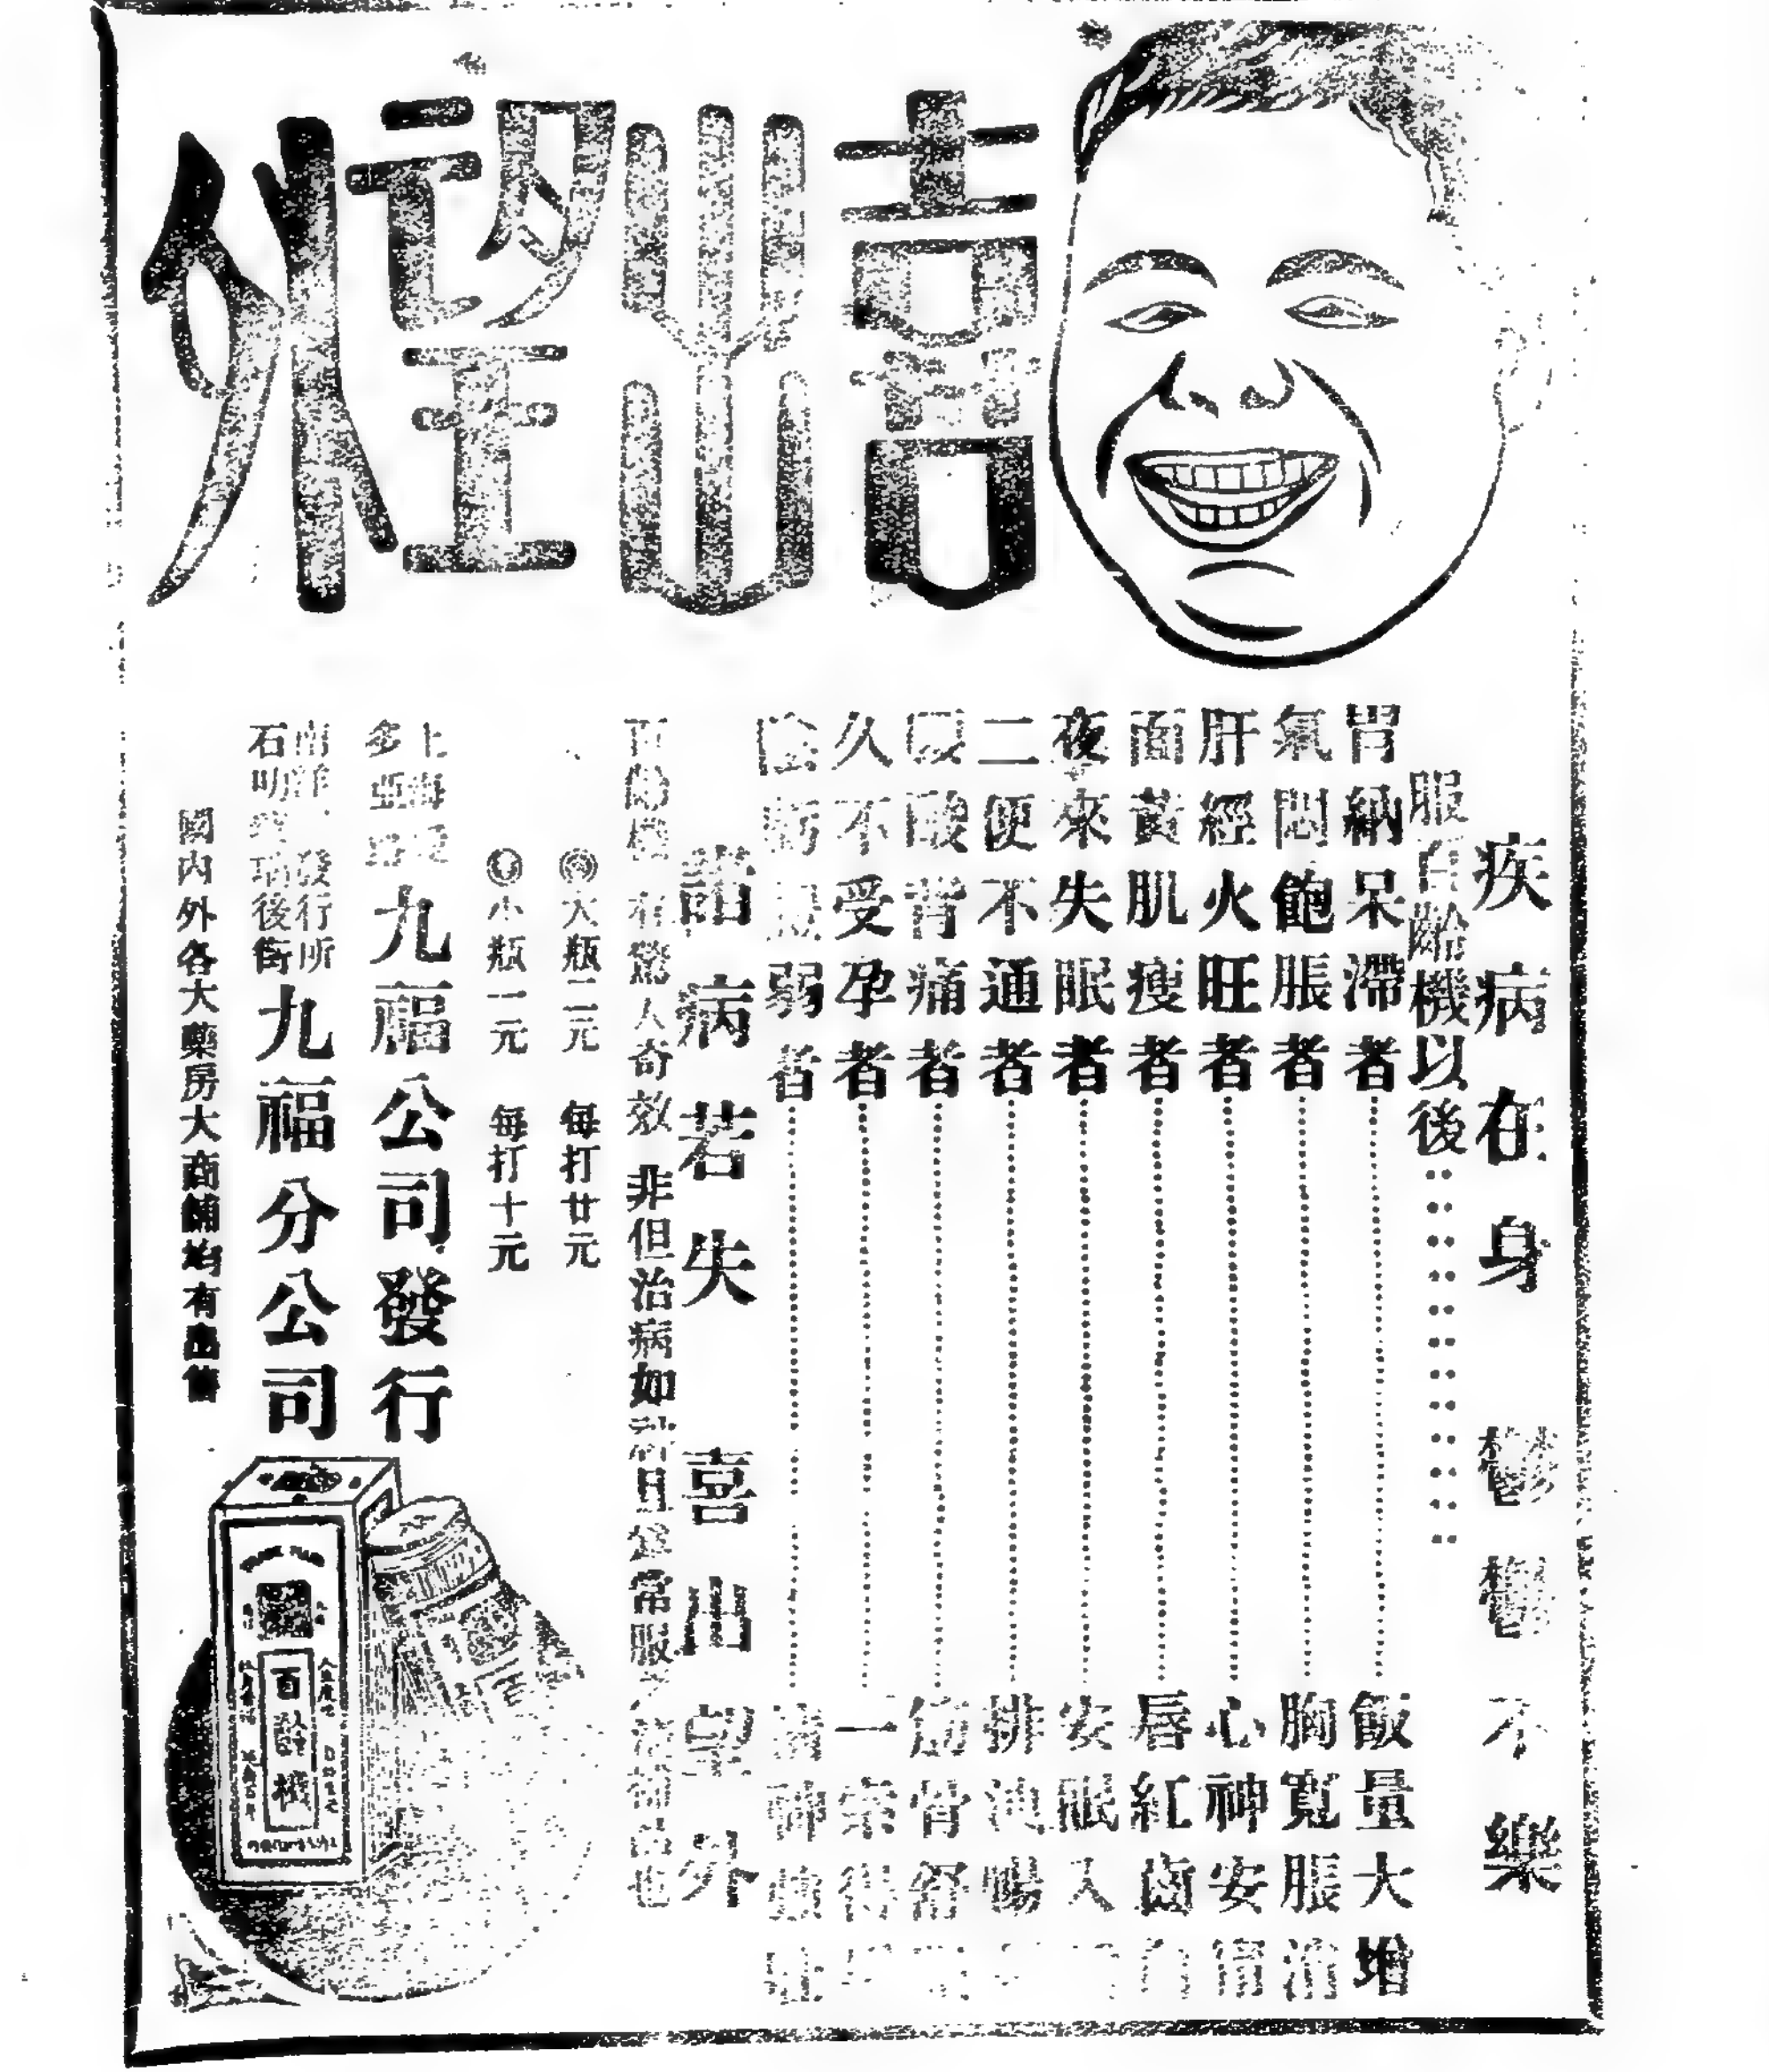 喜出望外
疾病在身 鬱鬱不樂
服百齡機以後
胃納呆滯者 飯量大增
氣悶飽脹者 胸寬脹消
肝經火旺者 心神安甯
面黃肌瘦者 唇紅齒白
夜來失眠者 安眠入
二便不通者 排洩暢
腰酸背痛者 筋骨舒
久不受孕者 一索得
陰虧 弱者 精神 壯
諸病若失 喜出望外
百齡機 有驚人奇效 非但治病如神 且為常服之 補品也
大瓶二元 每打廿元
小瓶一元 每打十元
上海
多亞路
九福公司發行
南洋 發行所
石叻 後街
九福分公司
國內外各大藥房大商鋪均有出售
百齡機